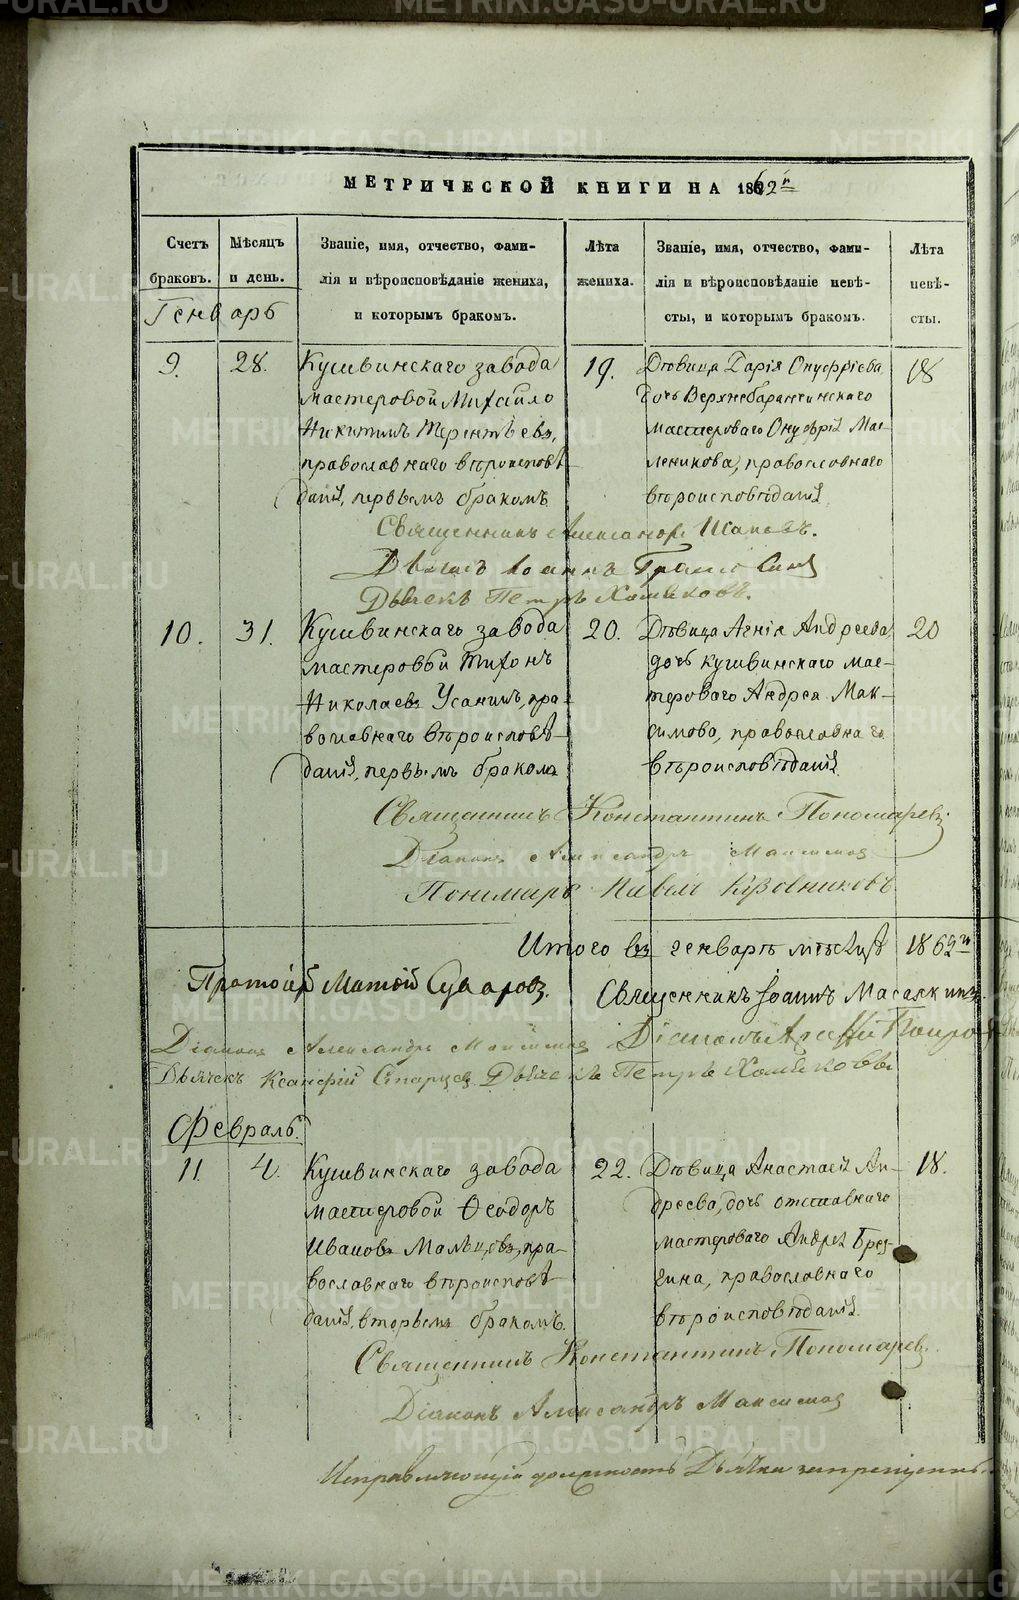 МЕТРИЧЕСКОЙ КНИГИ НА 1862й
Счетъ браковъ.
Мѣсяцъ и день.
Званіе, имя, отчество, фами-
лія и вѣроисповѣданіе жениха,
и которымъ бракомъ.
Лѣта жениха.
Званіе, имя, отчество, фами-
лія и вѣроисповѣданіе невѣ-
сты, и которымъ бракомъ.
Лѣта невѣ-
сты.
Генварь
9.
28.
Кушвинскаго завода
мастеровой Михайло
Никитинъ Терентьевъ,
православнаго вѣроисповѣ-
данія, первымъ бракомъ
19.
Дѣвица Дарія Онуфріева
дочь Верхнебаранчинскаго
мастероваго Онуфрія Мас-
леникова, православнаго
вѣроисповѣданія
18
Священникъ Александръ
Дьячекъ Петръ Хомяковъ.
10.
31.
Кушвинскаго завода
мастеровой Тихонъ
Николаевъ Усанинъ, пра-
вославнаго вѣроисповѣ-
данія, первымъ бракомъ
20.
Дѣвица Агнія Андреева
дочь кушвинскаго мас-
тероваго Андрея Мак-
симова, православнаго
вѣроисповѣданія
20
Священникъ Константинъ Пономаревъ.
Діаконъ Александръ Максимов
Пономарь Павелъ
Итого въ генварѣ мѣсяцѣ 1862й
Протоіер Матѳій Сушоровъ.
Священникъ Іоаннъ Масалкинъ.
Діаконъ Александръ Максимов
Діаконъ
Дьячекъ Ксенофий Старцев
Дьячекъ Петръ Хомяковъ
Февраль.
11.
4.
Кушвинскаго завода
мастеровой Ѳеодоръ
Ивановъ Мальцовъ, пра-
вославнаго вѣроисповѣ-
данія, вторымъ бракомъ.
22.
Дѣвица Анастасія Ан-
дреева, дочь отставнаго
мастероваго Андрея Брез-
гина, православнаго
вѣроисповѣданія
18.
Священникъ Константинъ Пономарев.
Діаконъ Александръ Максимов
Исправляющій должность Дьячка